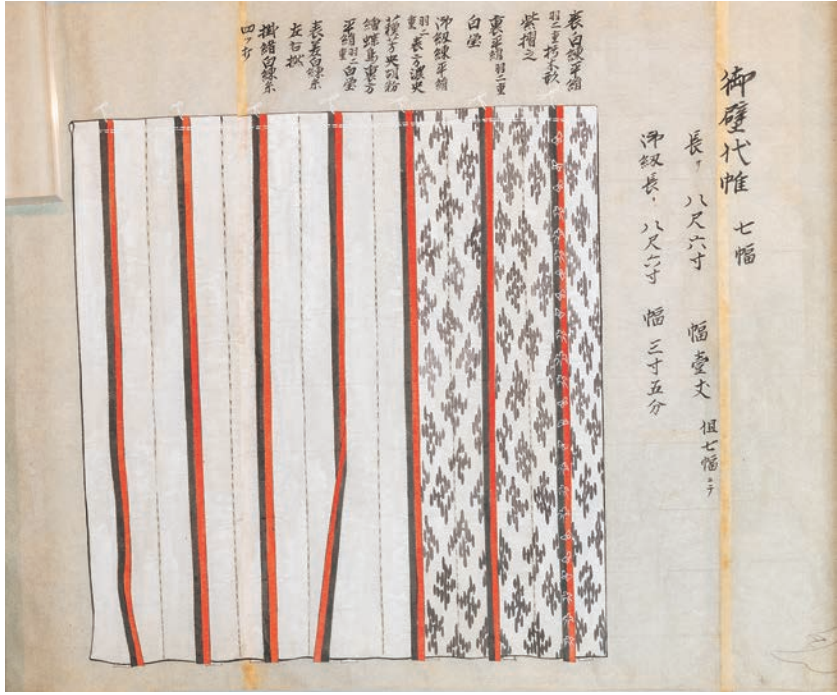 御壁代帷 七幅
長サ 八尺六寸 幅壹丈 但七幅ニテ
御紐長サ 八尺六寸 幅三寸五分
表白練平絹
羽二重朽木形
紫摺之
裏平絹羽二重
白瑩
御紐練平絹
羽二重表方濃
蘇芳
胡粉
繪蝶鳥裏方
平絹羽二重白瑩
表差白練糸
左右撚
掛緒白練糸
四ツ打